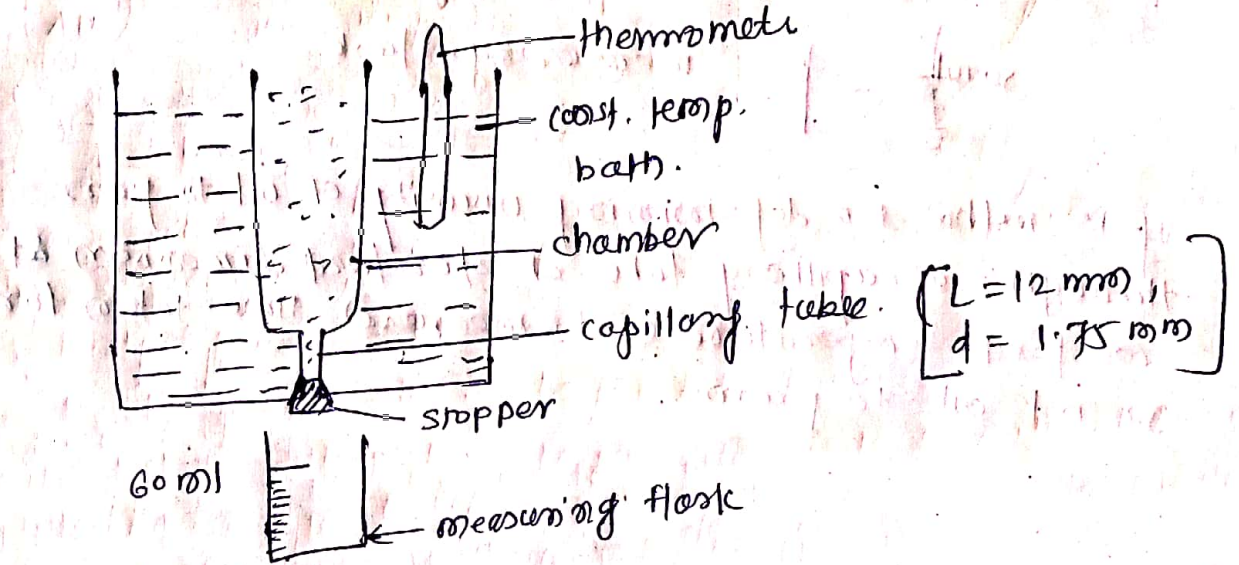 thermomete
const. temp.
bath.
chamber
capillary tube. [L = 12 mm,
d = 1.75 mm]
stopper
60 ml
measuring flask